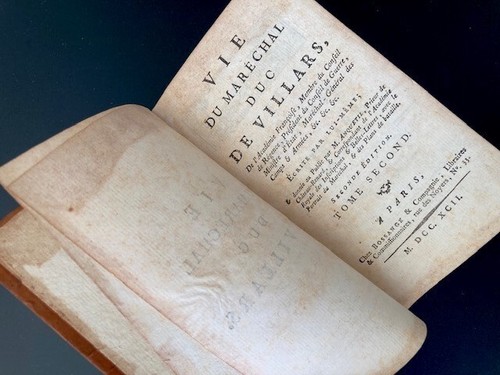 VIE
DU MARÉCHAL
DUC
DE VILLARS,
De l'Académie Françoise, Membre du Conseil
de Régence, Président du Conseil de Guerre,
Ministre d'État, Maréchal-Général des
Camps & Armées, &c. &c. &c.
ÉCRITE PAR LUI-MÊME;
& donnée au Public par M. ANQUETIL, Prieur de
Château-Renard, & Correspondant de l'Académie
Royale des Inscriptions & Belles-Lettres; avec le
Portrait du Maréchal, & des Plans de bataille.
SECONDE ÉDITION.
TOME SECOND.
A PARIS,
Chez BOSSANGE & Compagnie, Libraires
& Commissionnaires, rue des Noyers, No. 33.
M. DCC. XCII.